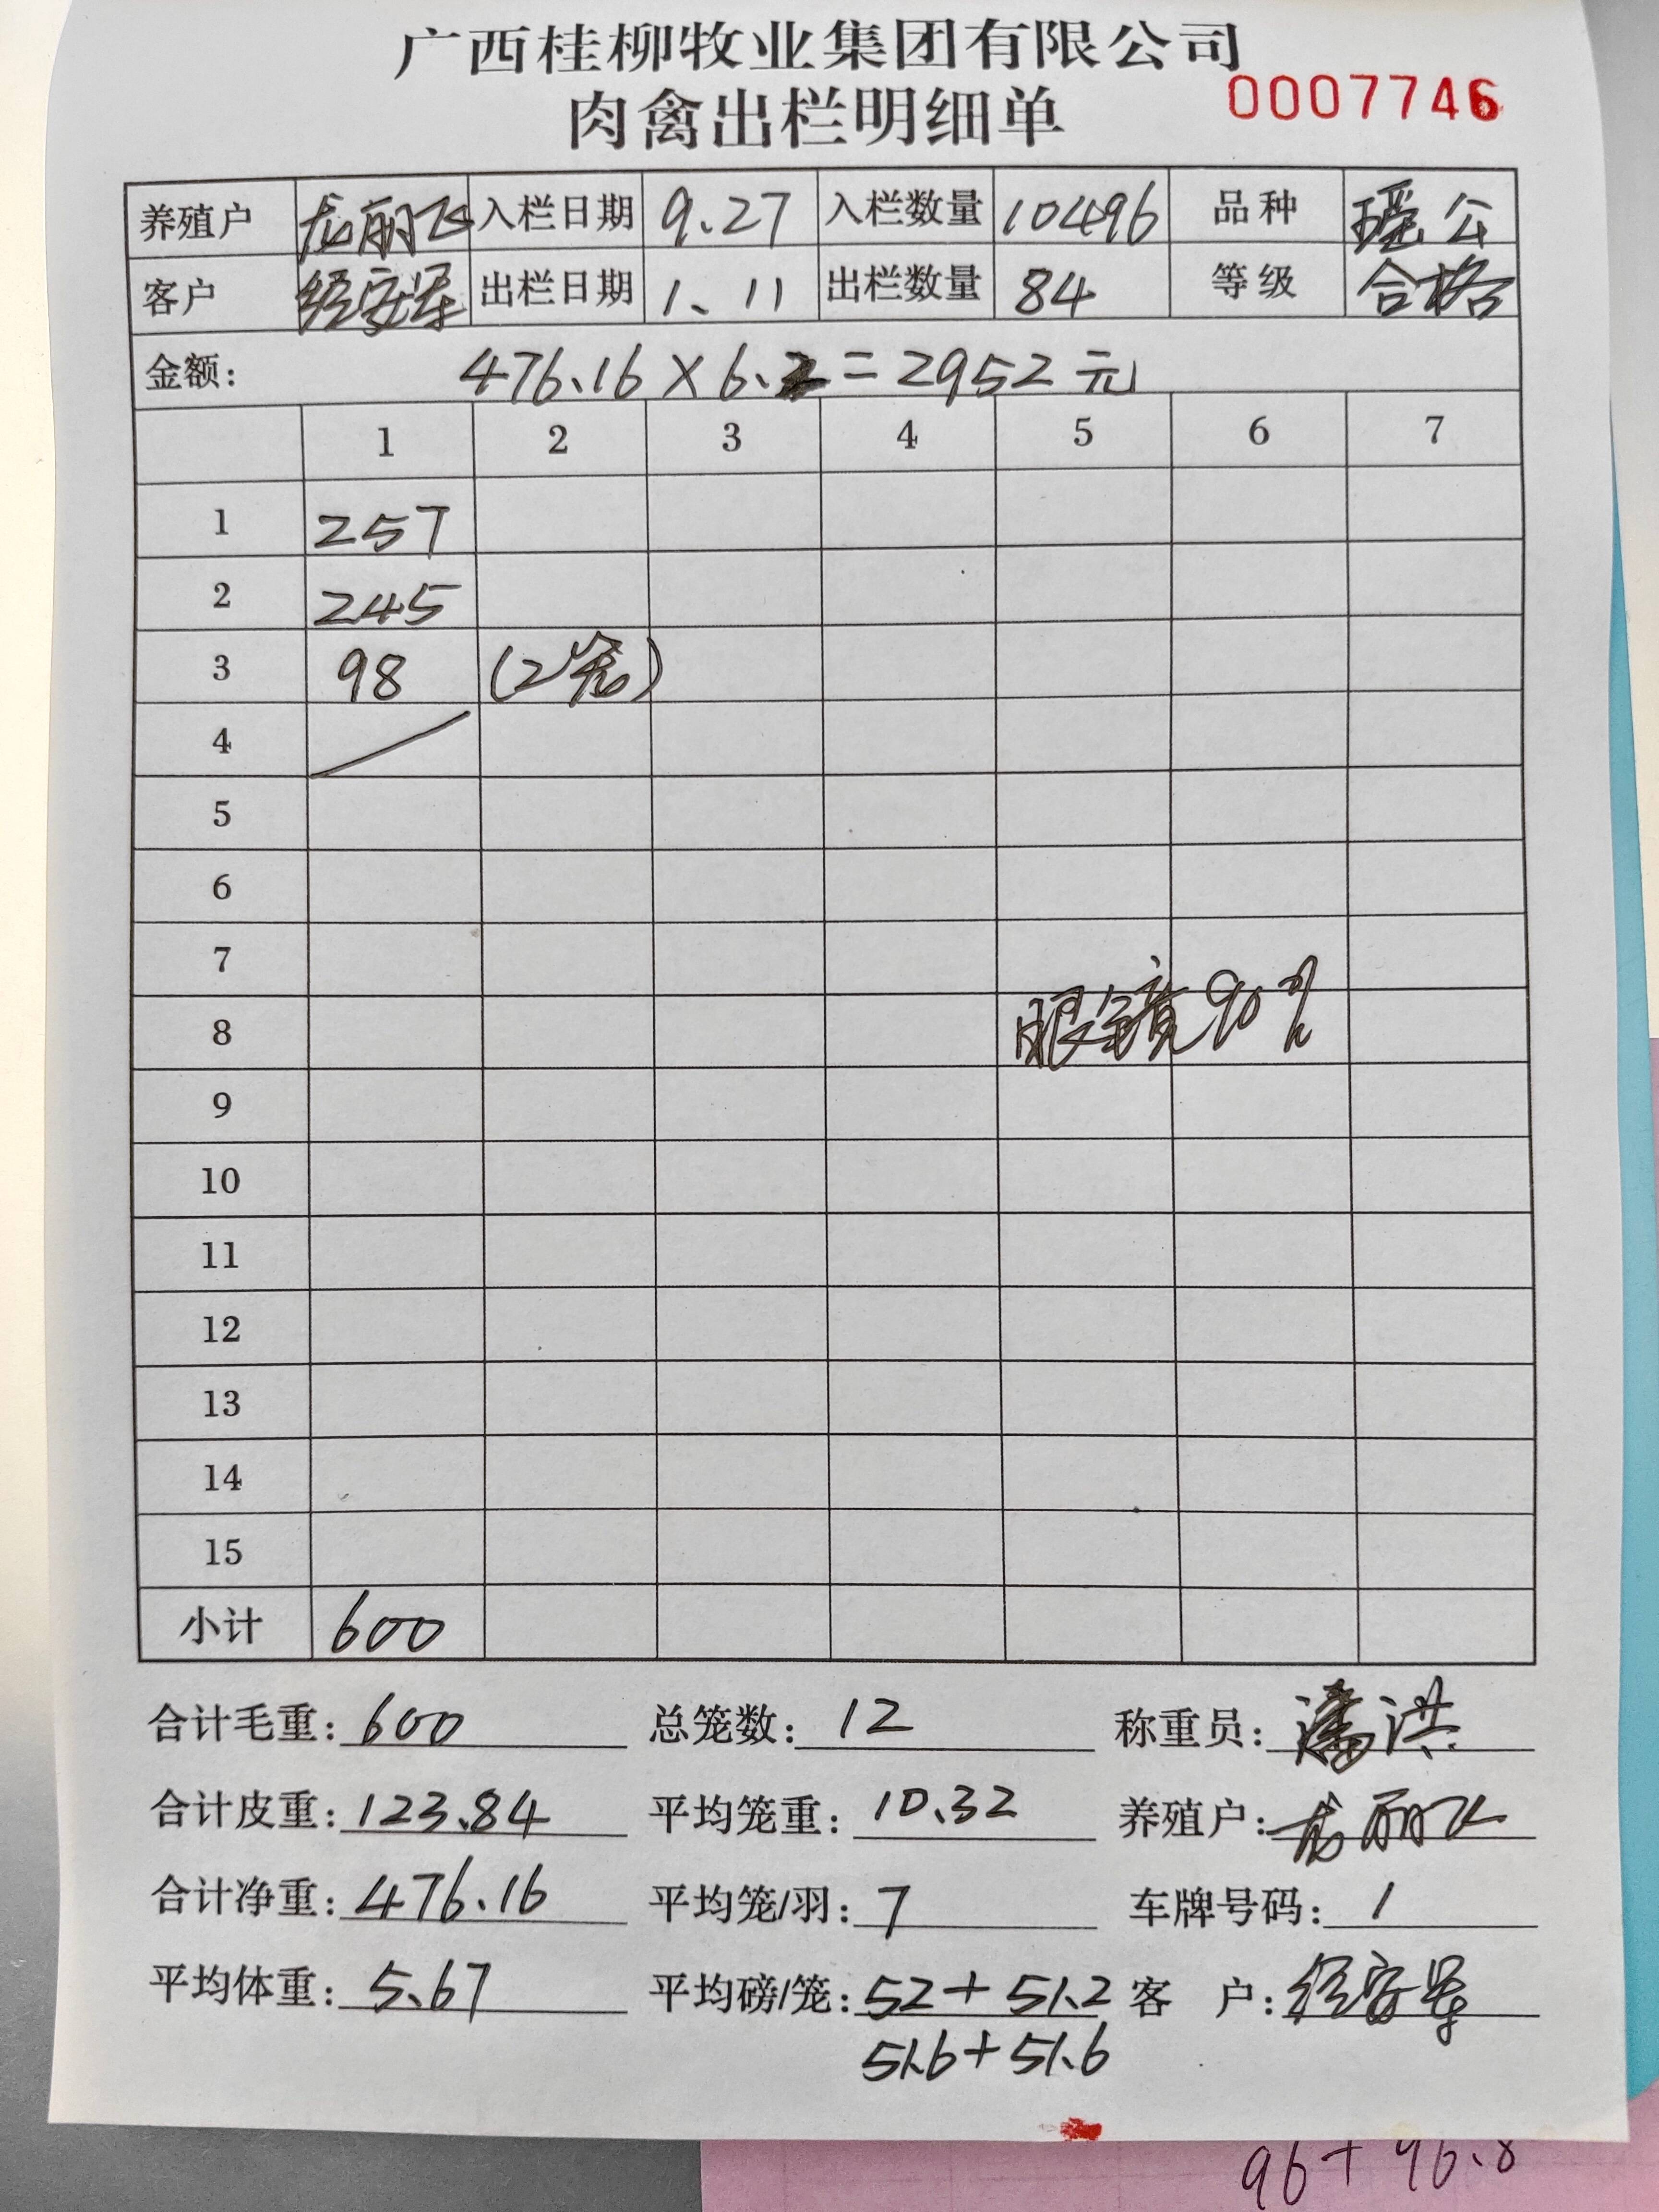 广西桂柳牧业集团有限公司
肉禽出栏明细单
0007746
养殖户 龙丽飞 入栏日期 9.27 入栏数量 10496 品种 瑶公
客户 经安 出栏日期 1.11 出栏数量 84 等级 合格
金额: 476.16×6.2=2952元
1 2 3 4 5 6 7
1 257
2 245
3 98 (2笼)
4
5
6
7
8 眼镜90%
9
10
11
12
13
14
15
小计 600
合计毛重: 600 总笼数: 12 称重员: 潘洪
合计皮重: 123.84 平均笼重: 10.32 养殖户: 龙丽飞
合计净重: 476.16 平均笼/羽: 7 车牌号码: /
平均体重: 5.67 平均磅/笼: 52+51.2 客 户: 经安
51.6+51.6
96+96.8